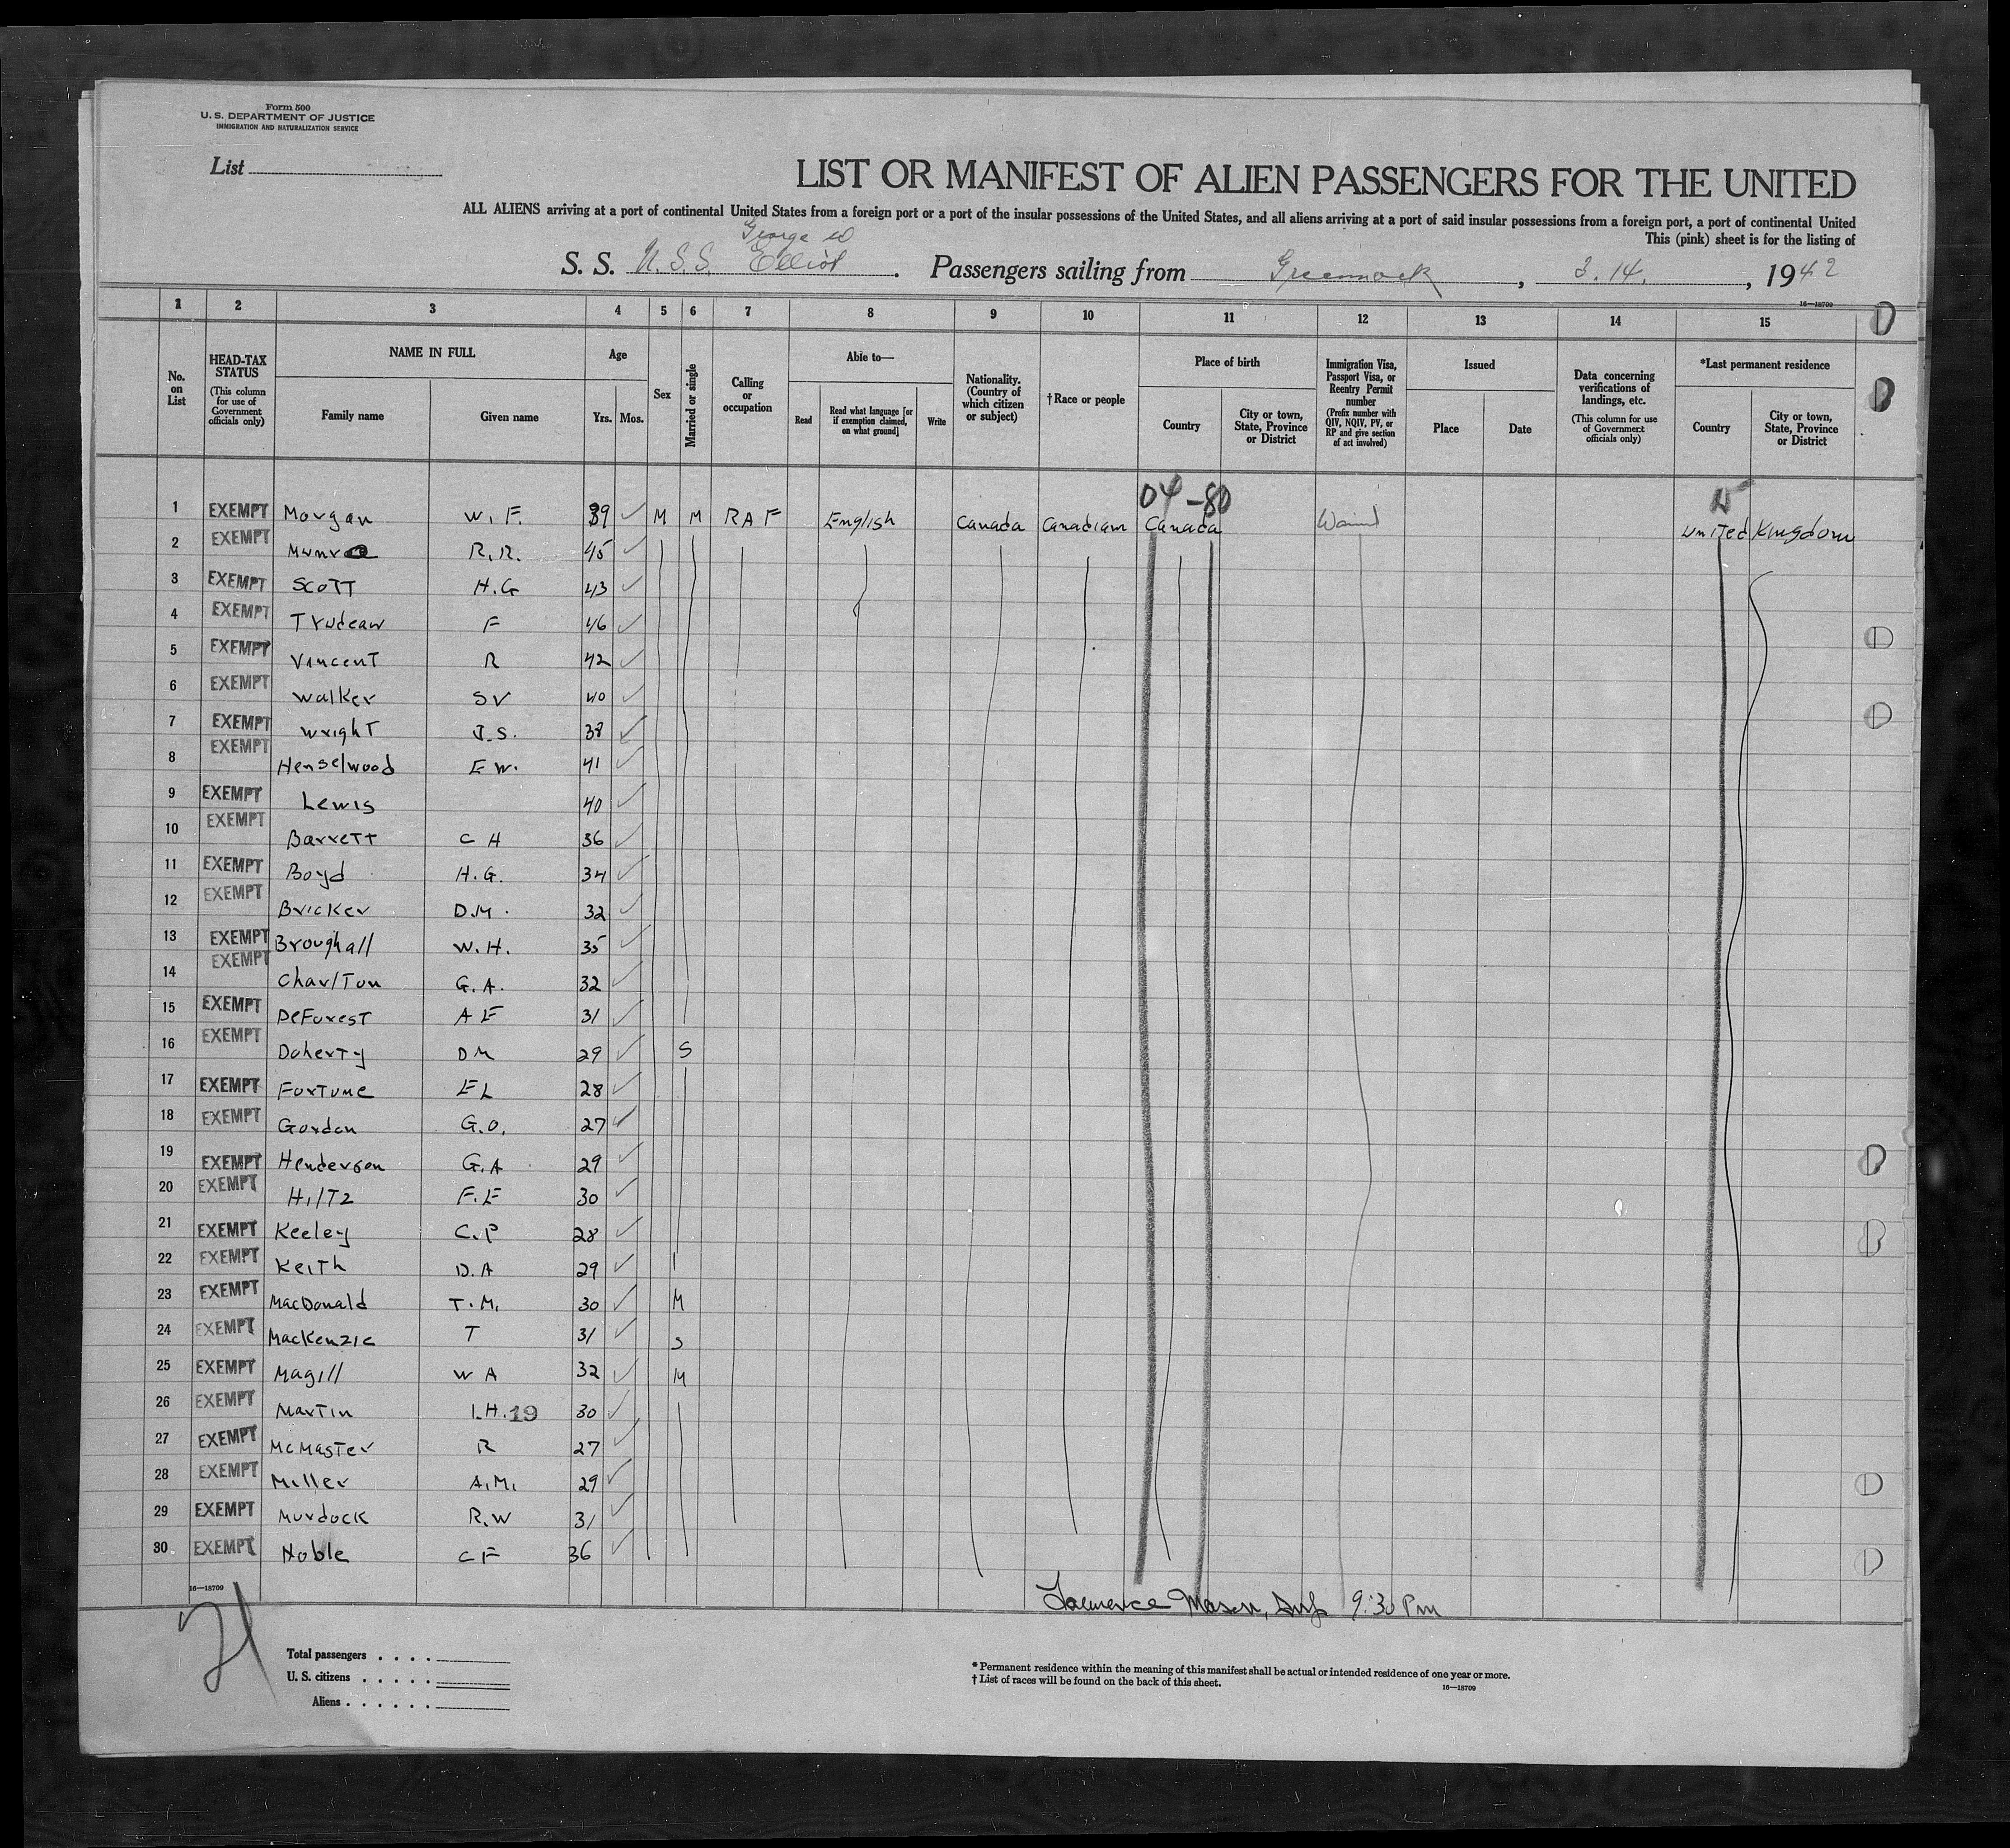 Form 500
U. S. DEPARTMENT OF JUSTICE
IMMIGRATION AND NATURALIZATION SERVICE
List
LIST OR MANIFEST OF ALIEN PASSENGERS FOR THE UNITED
ALL ALIENS arriving at a port of continental United States from a foreign port or a port of the insular possessions of the United States, and all aliens arriving at a port of said insular possessions from a foreign port, a port of continental United
This (pink) sheet is for the listing of
George
S. S. U.S.S. Elliot. Passengers sailing from Greenock, 3.14., 1942
16—18709
1 2 3 4 5 6 7 8 9 10 11 12 13 14 15
No. on List
HEAD-TAX STATUS (This column for use of Government officials only)
NAME IN FULL
Family name Given name
Age
Yrs. Mos.
Sex
Married or single
Calling or occupation
Able to—
Read
Read what language [or if exemption claimed, on what ground]
Write
Nationality. (Country of which citizen or subject)
†Race or people
Place of birth
Country
City or town, State, Province or District
Immigration Visa, Passport Visa, or Reentry Permit number (Prefix number with QIV, NQIV, PV, or RP and give section of act involved)
Issued
Place Date
Data concerning verifications of landings, etc. (This column for use of Government officials only)
*Last permanent residence
Country
City or town, State, Province or District
04-80
1 EXEMPT Morgan W. F. 39 M M RAF English Canada Canadian Canada Waived United Kingdom
2 EXEMPT R.R. 45
3 EXEMPT Scott H.G 43
4 EXEMPT Trudeau F 46
5 EXEMPT Vincent R 42
6 EXEMPT Walker SV 40
7 EXEMPT Wright J.S. 38
8 EXEMPT Henselwood E W. 41
9 EXEMPT Lewis 40
10 EXEMPT Barrett C H 36
11 EXEMPT Boyd H.G. 34
12 EXEMPT Bricker D.M. 32
13 EXEMPT Broughall W.H. 35
14 EXEMPT Charlton G.A. 32
15 EXEMPT DeForest A E 31
16 EXEMPT Doherty D M 29 S
17 EXEMPT Fortune E L 28
18 EXEMPT Gordon G.O. 27
19 EXEMPT Henderson G.A 29
20 EXEMPT Hiltz F.E 30
21 EXEMPT Keeley C.P 28
22 EXEMPT Keith D.A 29
23 EXEMPT MacDonald T.M. 30 M
24 EXEMPT MacKenzie T 31 S
25 EXEMPT Magill W A 32 M
26 EXEMPT Martin I.H. 19 30
27 EXEMPT McMaster R 27
28 EXEMPT Miller A.M. 29
29 EXEMPT Murdock R.W 31
30 EXEMPT Noble C F 36
16—18709
Mason, 9:30 Pm
21
Total passengers
U. S. citizens
Aliens
* Permanent residence within the meaning of this manifest shall be actual or intended residence of one year or more.
† List of races will be found on the back of this sheet.
16—18709